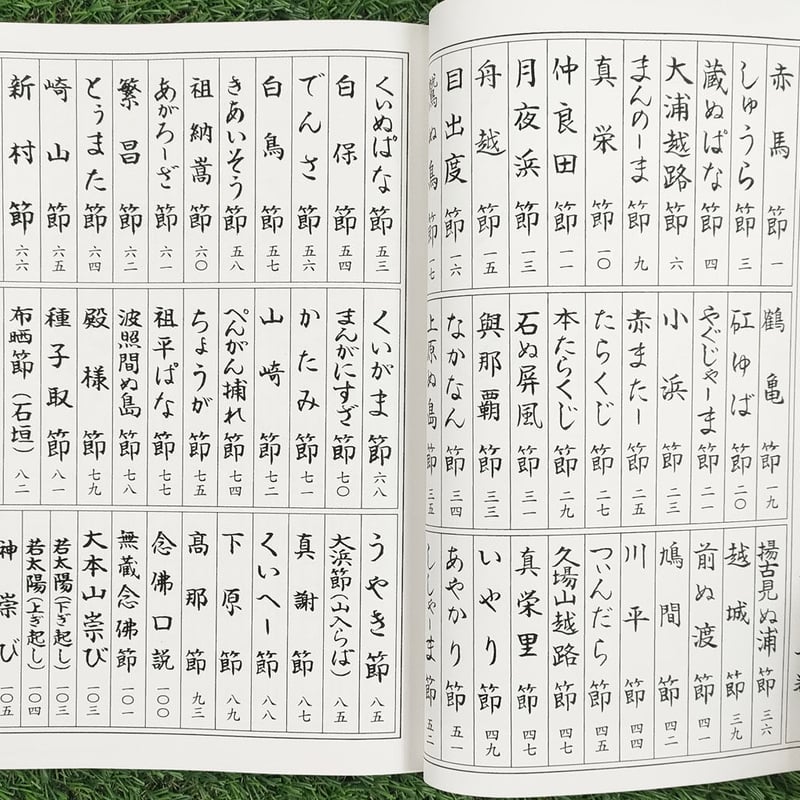 赤馬節 一
しゅうら節 三
蔵ぬぱな節 四
大浦越路節 六
まんのーま節 九
真栄節 一〇
仲良田節 一一
月夜浜節 一三
舟越節 一五
目出度節 一六
鷲ぬ鳥節 一七
鶴亀節 一九
砿ゆば節 二〇
やぐじゃーま節 二一
小浜節 二三
赤またー節 二五
たらくじ節 二七
本たらくじ節 二九
石ぬ屏風節 三一
與那覇節 三三
なかなん節 三四
上原ぬ島節 三五
揚古見ぬ浦節 三六
越城節 三九
前ぬ渡節 四一
鳩間節 四二
川平節 四四
つぃんだら節 四五
久場山越路節 四七
真栄里節 四七
いやり節 四九
あやかり節 五一
しゃーま節 五二
くいぬぱな節 五三
白保節 五四
でんさ節 五六
白鳥節 五七
きあいそう節 五八
祖納嵩節 六〇
あがろーざ節 六一
繁昌節 六二
とぅまた節 六四
崎山節 六五
新村節 六六
くいがま節 六八
まんがにすざ節 七〇
かたみ節 七一
山崎節 七二
ぺんがん捕れ節 七四
ちょうが節 七五
祖平ぱな節 七七
波照間ぬ島節 七八
殿様節 七九
種子取節 八一
布晒節(石垣) 八二
うやき節 八五
大浜節(山入らば) 八五
真謝節 八七
くいへー節 八八
下原節 八九
高那節 九三
念佛口説 一〇〇
無蔵念佛節 一〇一
大本山崇び 一〇三
若太陽(下ぎ起し) 一〇三
若太陽(上ぎ起し) 一〇四
神崇び 一〇五